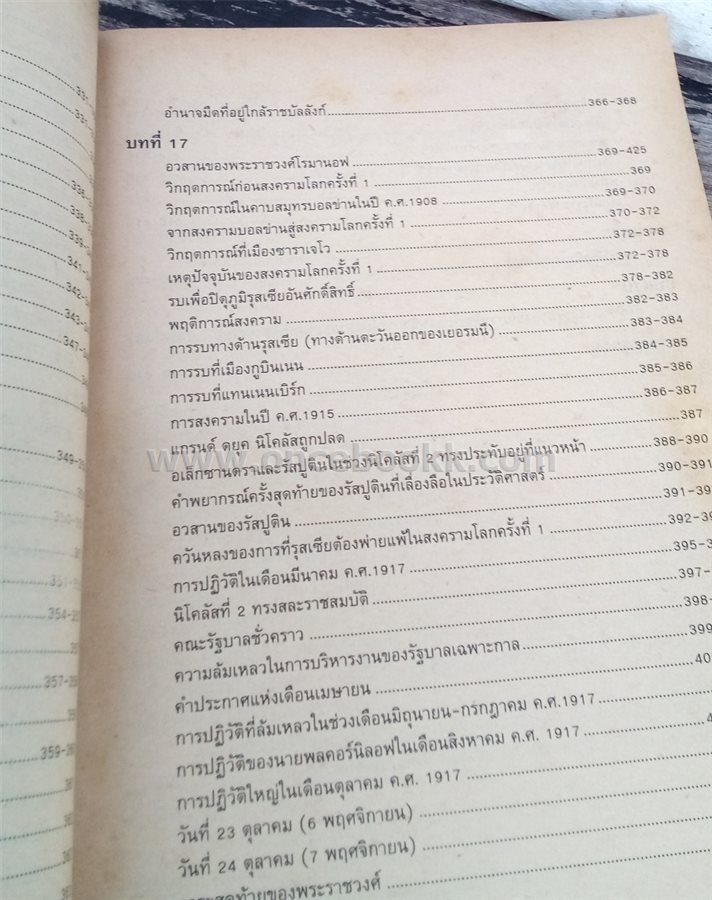 อำนาจมืดที่อยู่ใกล้ราชบัลลังก์ 366-368
บทที่ 17
อวสานของพระราชวงศ์โรมานอฟ 369-425
วิกฤตการณ์ก่อนสงครามโลกครั้งที่ 1 369
วิกฤตการณ์ในคาบสมุทรบอลข่านในปี ค.ศ.1908 369-370
จากสงครามบอลข่านสู่สงครามโลกครั้งที่ 1 370-372
วิกฤตการณ์ที่เมืองซาราเจโว 372-378
เหตุปัจจุบันของสงครามโลกครั้งที่ 1 372-378
รบเพื่อปิตุภูมิรุสเซียอันศักดิ์สิทธิ์ 378-382
พฤติการณ์สงคราม 382-383
การรบทางด้านรุสเซีย (ทางด้านตะวันออกของเยอรมนี) 383-384
การรบที่เมืองกูบินเนน 384-385
การรบที่แทนเนนเบิร์ก 385-386
การสงครามในปี ค.ศ.1915 386-387
แกรนด์ ดยุค นิโคลัสถูกปลด 387
อเล็กซานดราและรัสปูตินในช่วงนิโคลัสที่ 2 ทรงประทับอยู่ที่แนวหน้า 388-390
คำพยากรณ์ครั้งสุดท้ายของรัสปูตินที่เลื่องลือในประวัติศาสตร์ 390-391
อวสานของรัสปูติน 391-39
ควันหลงของการที่รุสเซียต้องพ่ายแพ้ในสงครามโลกครั้งที่ 1 392-39
การปฏิวัติในเดือนมีนาคม ค.ศ.1917 395-
นิโคลัสที่ 2 ทรงสละราชสมบัติ 397-
คณะรัฐบาลชั่วคราว 398-
ความล้มเหลวในการบริหารงานของรัฐบาลเฉพาะกาล 399
คำประกาศแห่งเดือนเมษายน 40
การปฏิวัติที่ล้มเหลวในช่วงเดือนมิถุนายน-กรกฎาคม ค.ศ.1917
การปฏิวัติของนายพลคอร์นิลอฟในเดือนสิงหาคม ค.ศ. 1917 4
การปฏิวัติใหญ่ในเดือนตุลาคม ค.ศ. 1917
วันที่ 23 ตุลาคม (6 พฤศจิกายน)
วันที่ 24 ตุลาคม (7 พฤศจิกายน)
สุดท้ายของพระราชวงศ์